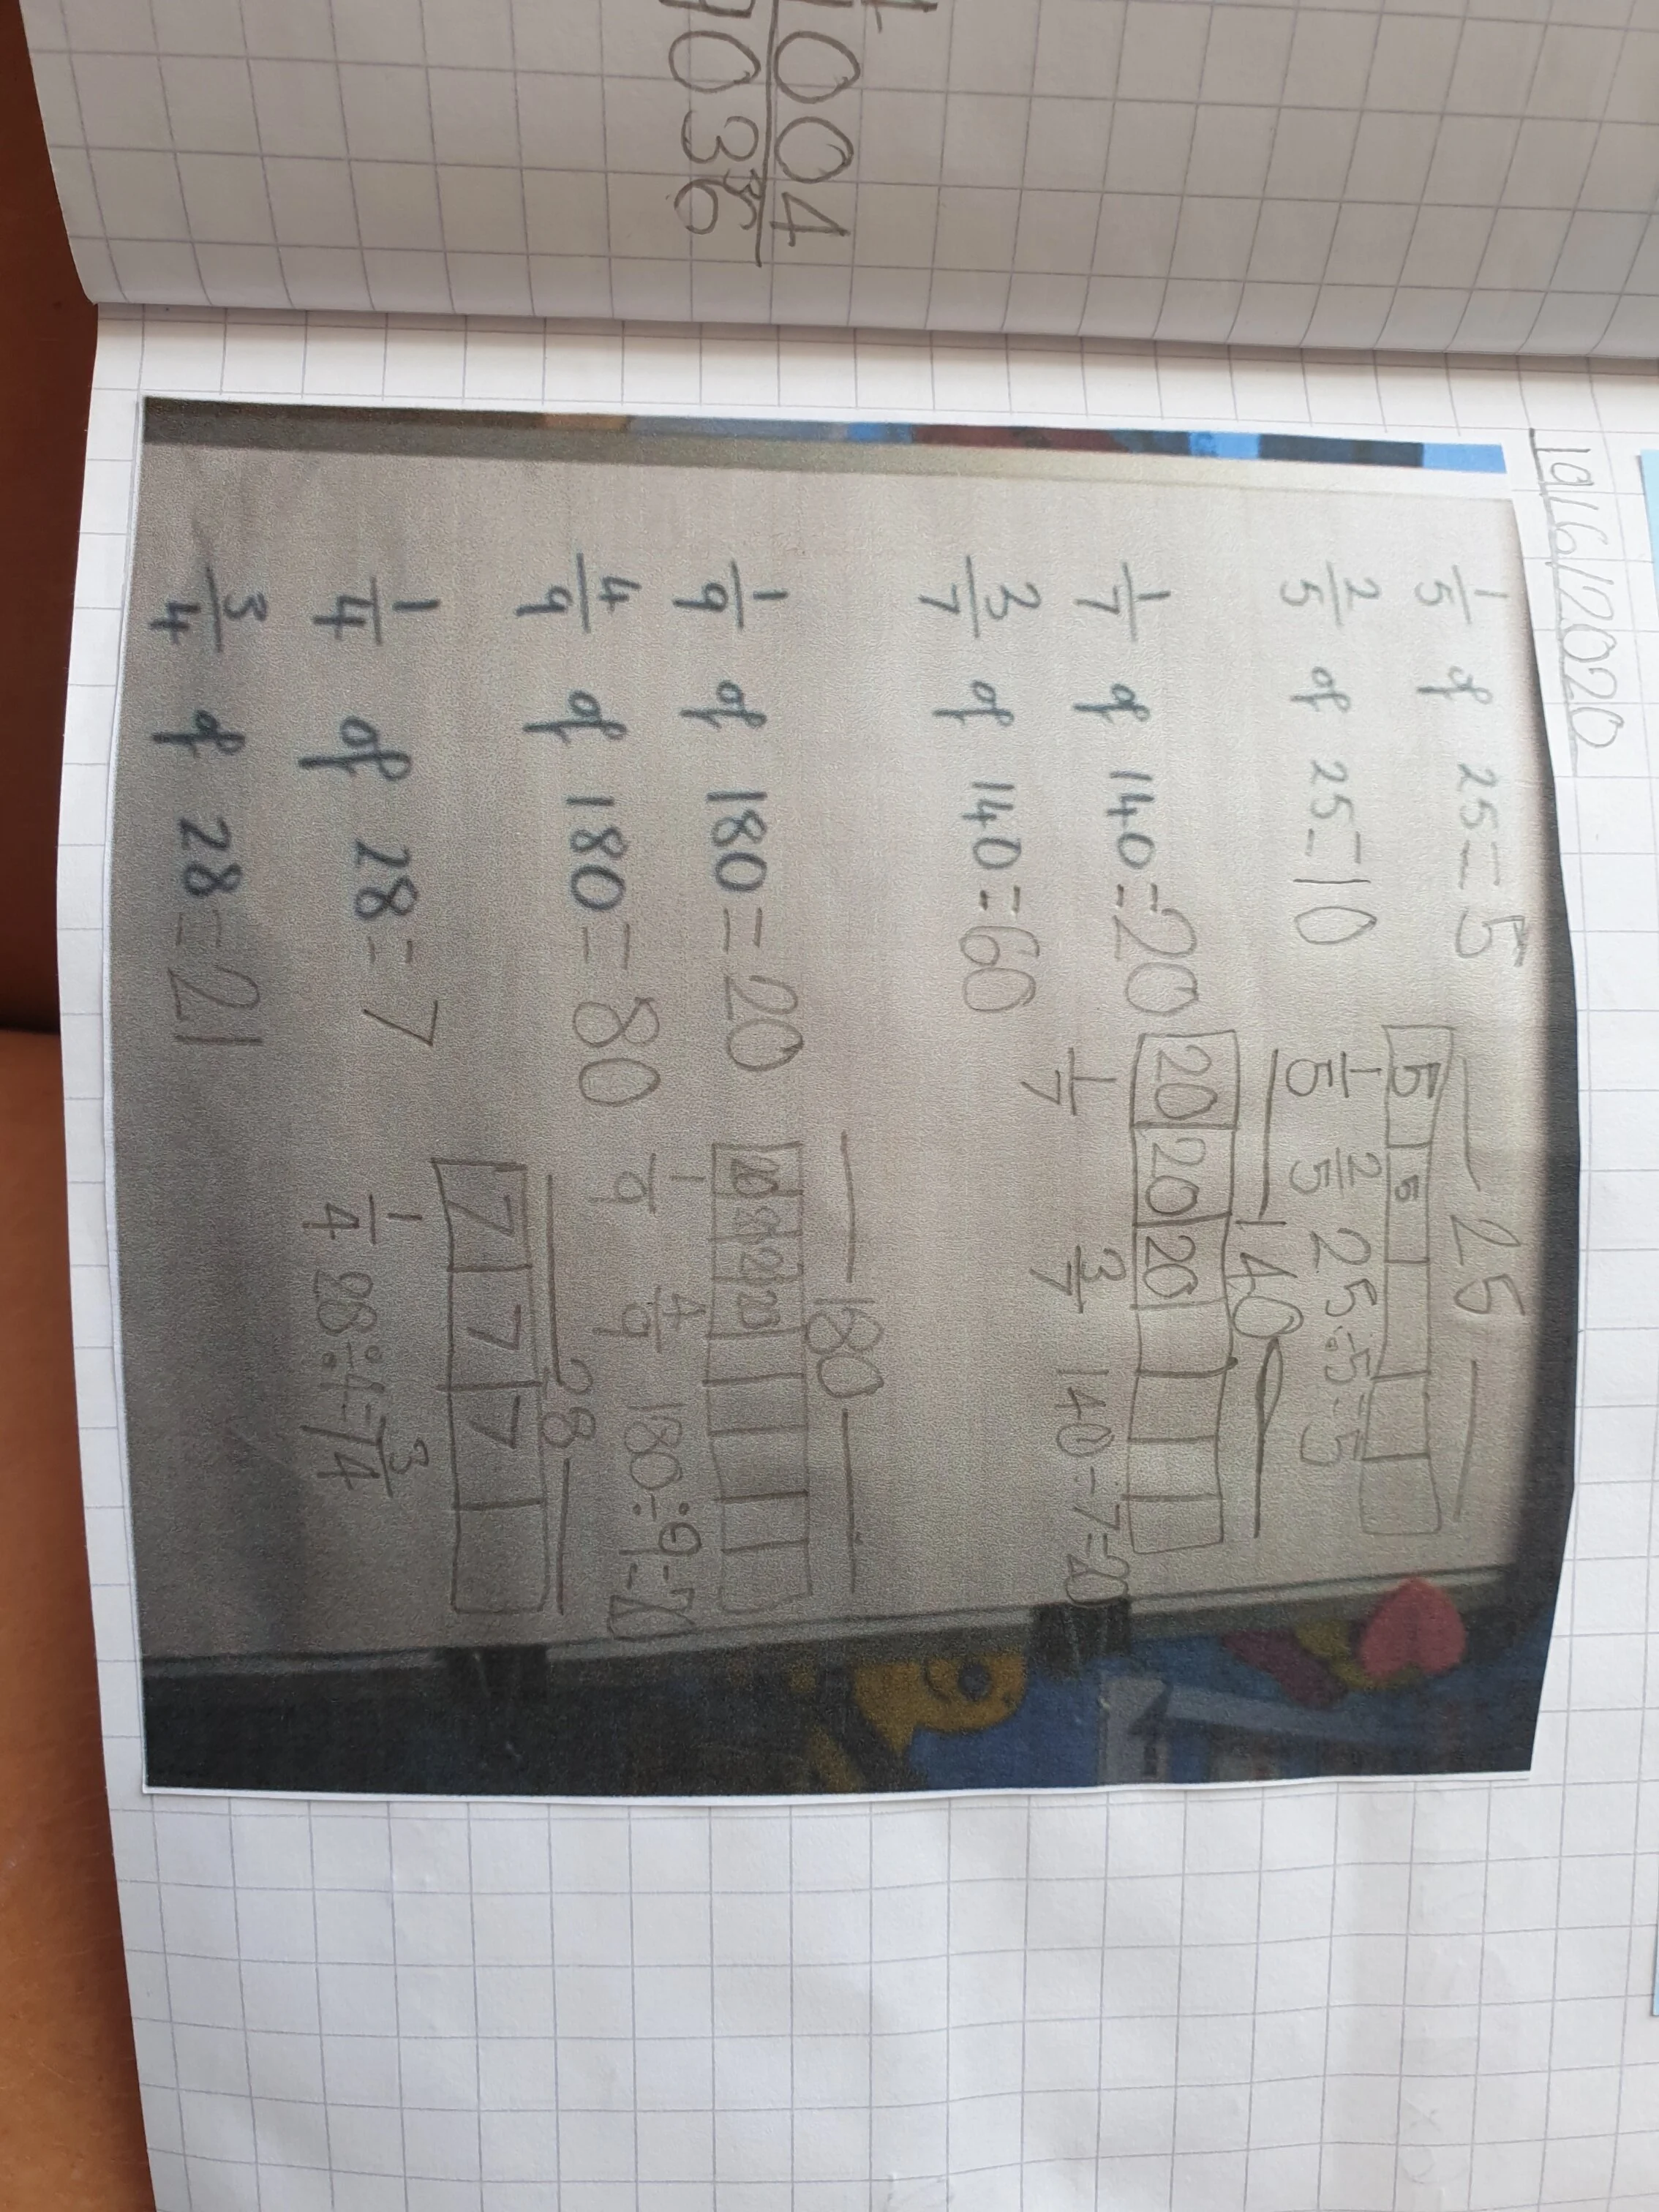 1004
9036
19/6/2020
1/5 of 25 = 5
2/5 of 25 = 10
25
5 5
1/5 2/5 25÷5=5
1/7 of 140 = 20
3/7 of 140 = 60
140
20 20 20
1/7 3/7 140÷7=20
1/9 of 180 = 20
4/9 of 180 = 80
180
20 20 20 20
1/9 4/9 180÷9=20
1/4 of 28 = 7
3/4 of 28 = 21
28
7 7 7
1/4 28÷4=7 3/4